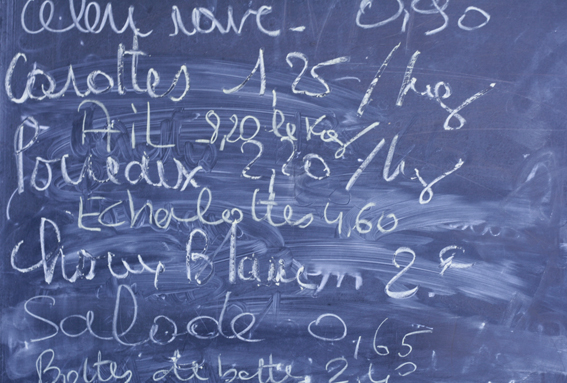 Céleri rave - 0,90
Carottes 1,25 /kg
AiL 9,20 le kg
Poireaux 2,20 /kg
Echalottes 4,60
Choux Blanc 2.
Salade 0,65
Bottes de bette 2,40